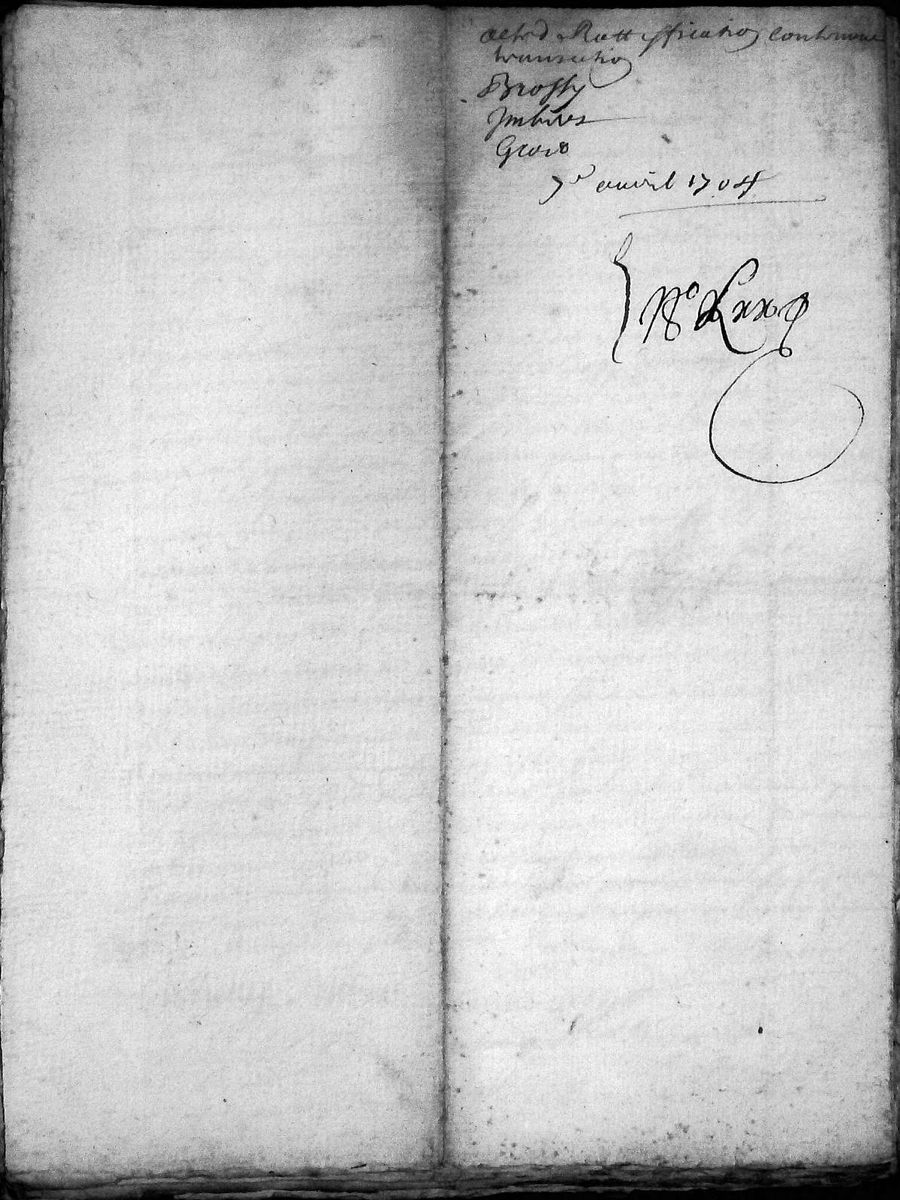 acte d Rattiffication contenue
transaction
Brossy
Imbert
Gros
7e auvril 1704
No Lxx